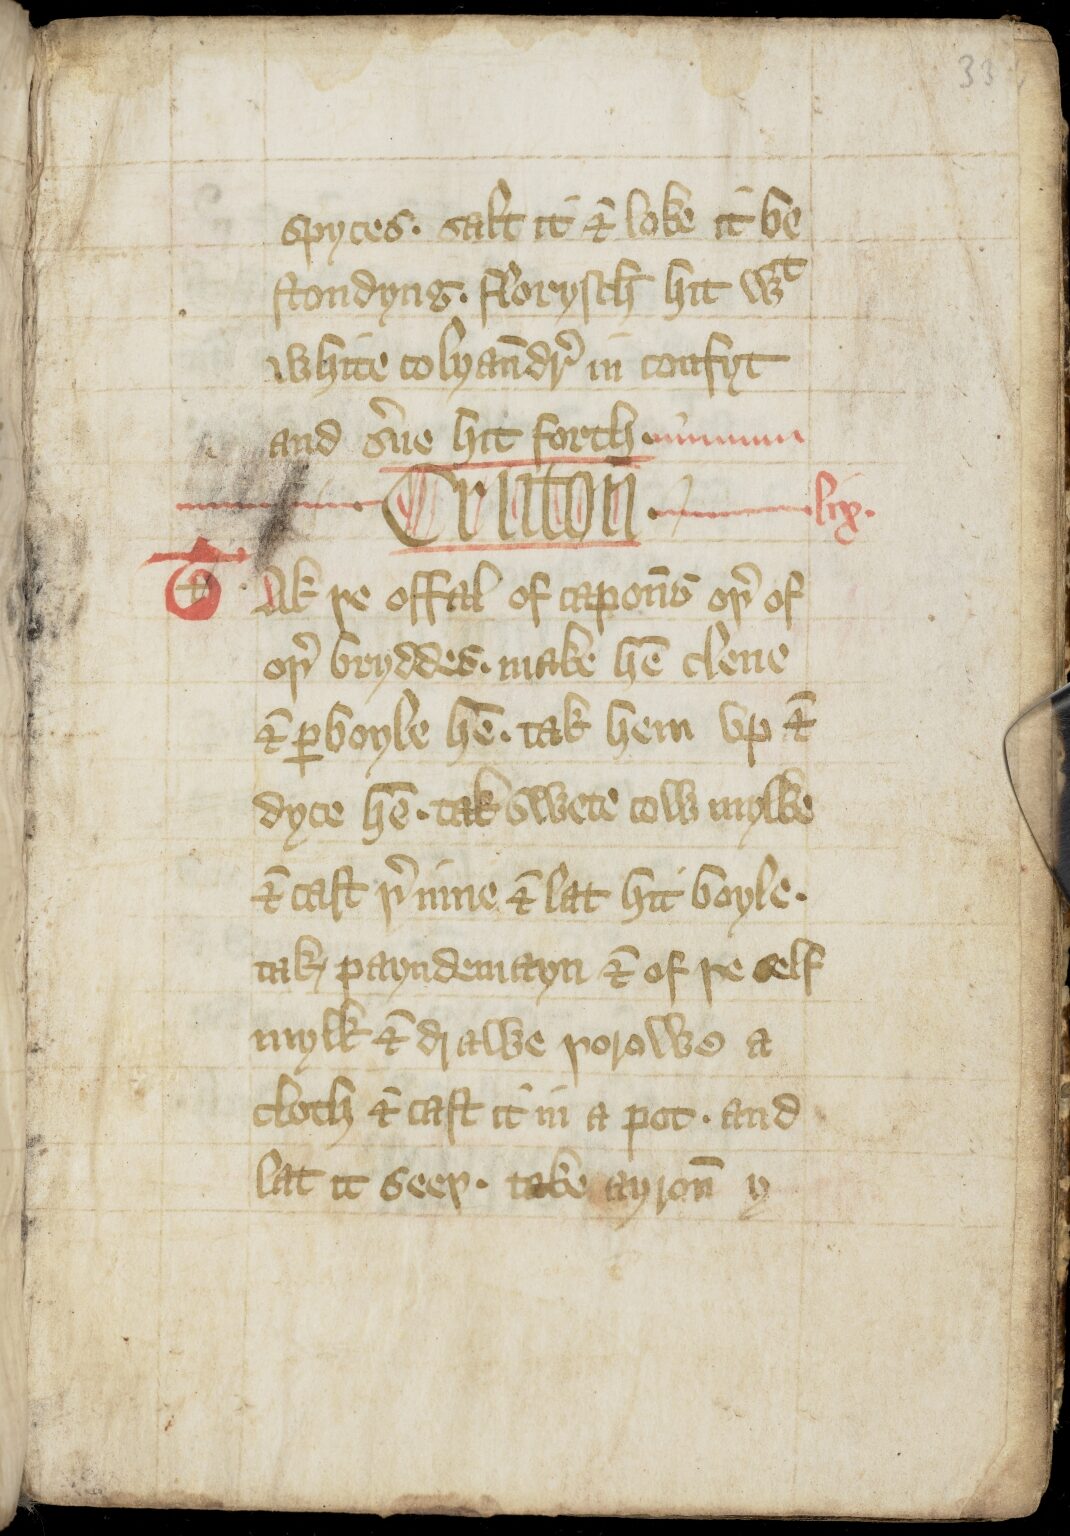 33
spyces. salt it & loke it be
stondyng. fflorysch hit wᵗ
white colyandr̛ in confyt
and s̛ue hit forth.
Cruton̄ . lix.
Tak þe offal of capon̄s oþ̛ of
oþ̛ bryddes. make hē clene
& ꝑboyle hē. tak hem vp &
dyce hē. tak swete cow mylke
& cast þ̛ inne & lat hit boyle.
tak payndemayn & of þe self
mylk & drawe þorowe a
cloth & cast it in a pot. and
lat it seeþ. take ayron̄ y